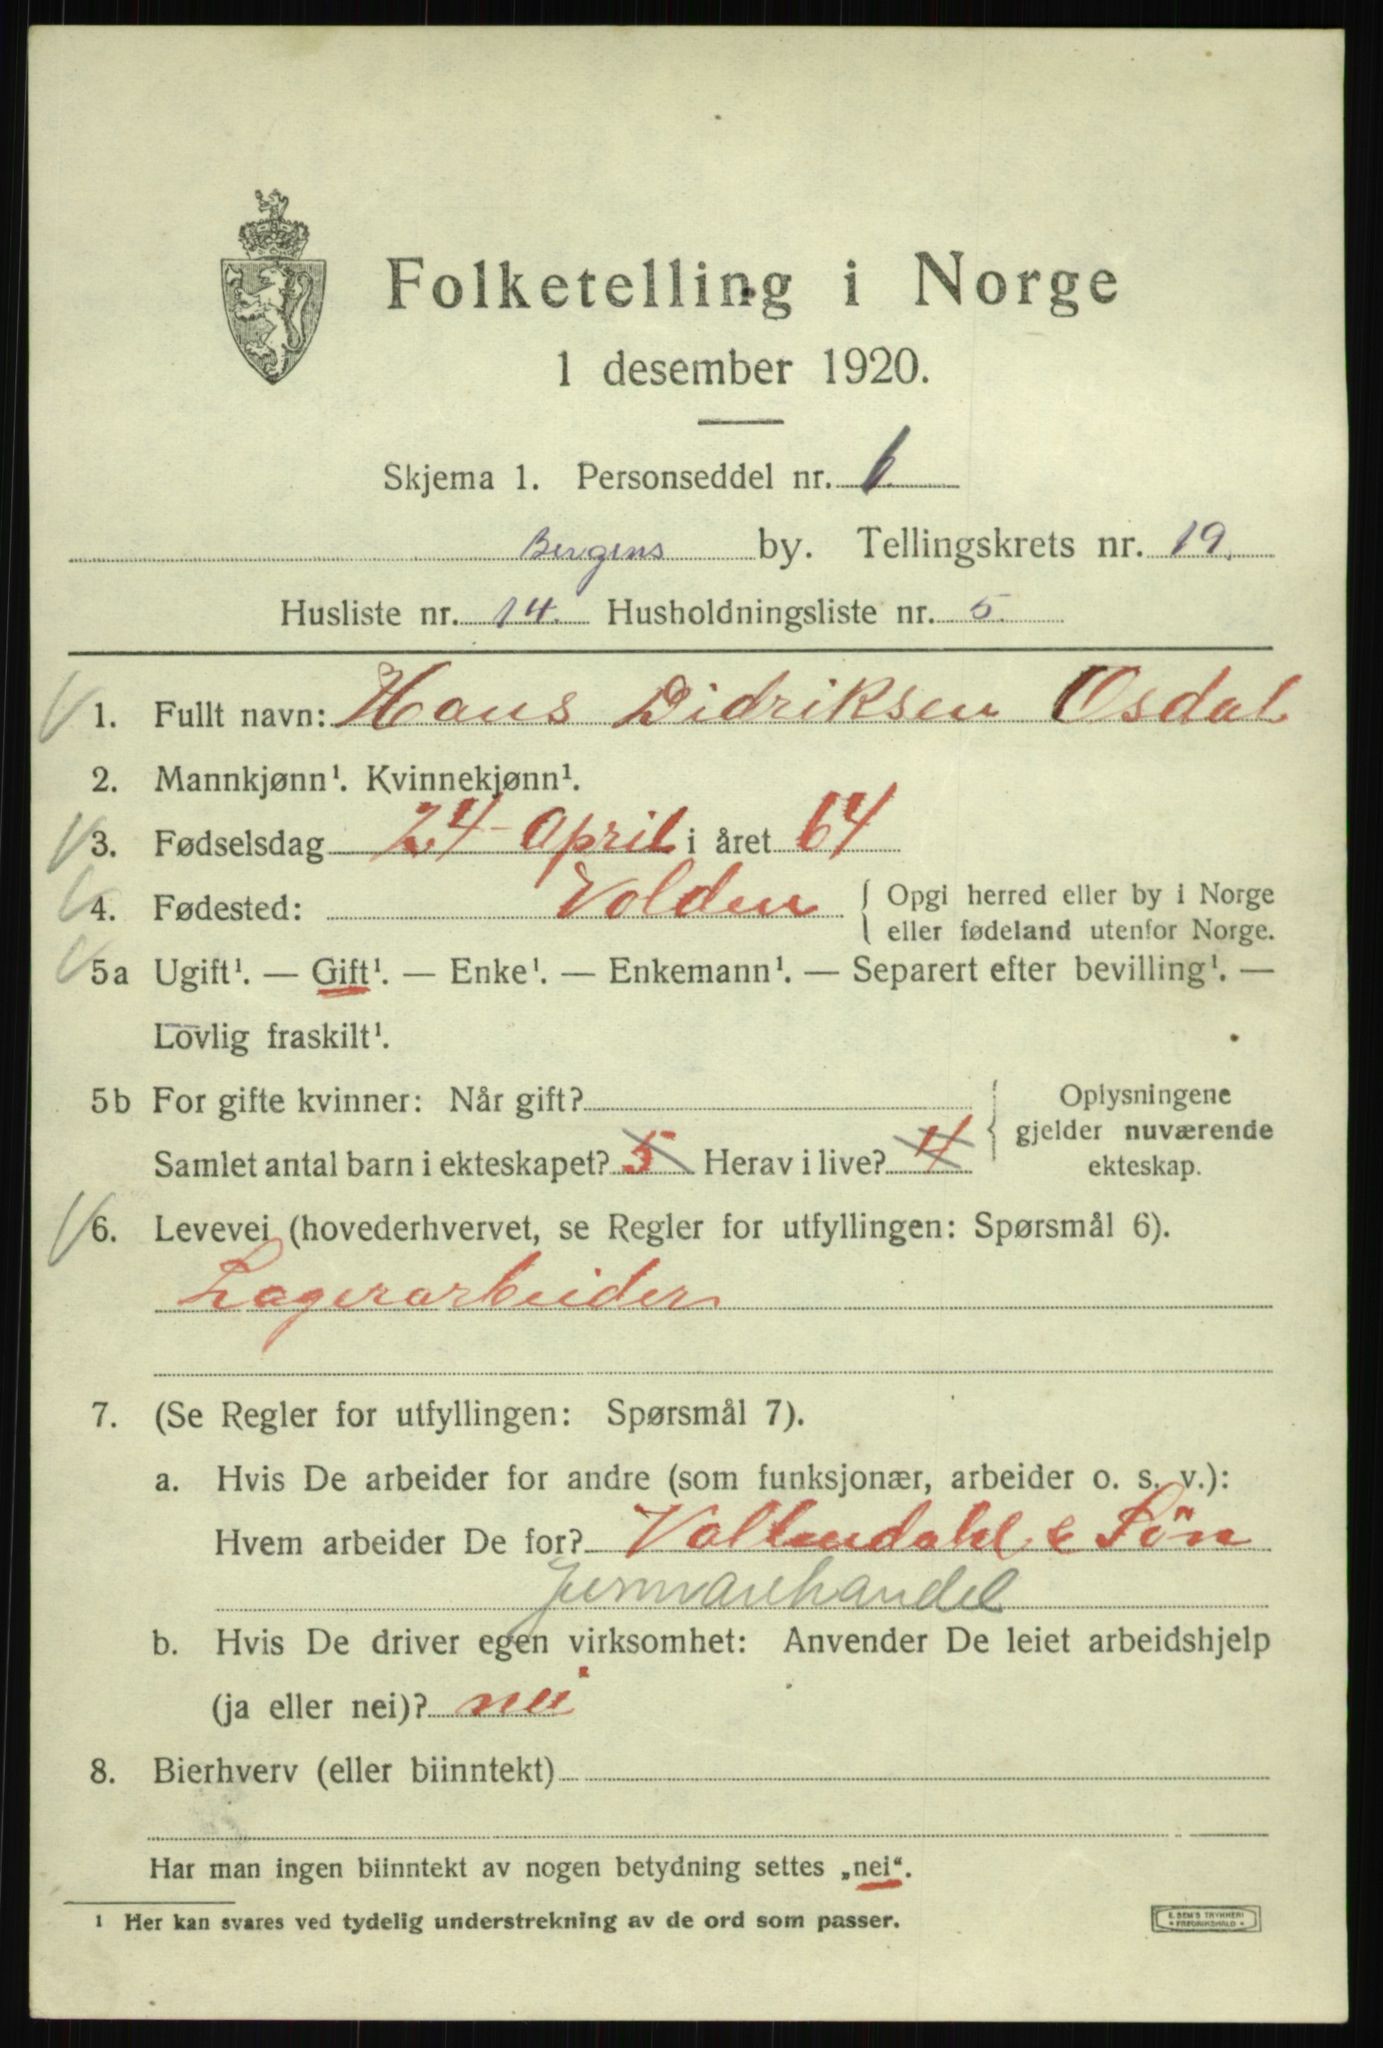 Folketelling i Norge
1 desember 1920.
Skjema 1. Personseddel nr. 1
Bergens by. Tellingskrets nr. 19.
Husliste nr. 14. Husholdningsliste nr. 5.
1. Fullt navn: Hans Didriksen Osdal
2. Mannkjønn¹. Kvinnekjønn¹.
3. Fødselsdag 24 April i året 64
4. Fødested: Volden { Opgi herred eller by i Norge
eller fødeland utenfor Norge.
5a Ugift¹. — Gift¹. — Enke¹. — Enkemann¹. — Separert efter bevilling¹. —
Lovlig fraskilt¹.
5b For gifte kvinner: Når gift? { Oplysningene
gjelder nuværende
Samlet antal barn i ekteskapet? 5 Herav i live? 4 ekteskap.
6. Levevei (hovederhvervet, se Regler for utfyllingen: Spørsmål 6).
Lagerarbeider
7. (Se Regler for utfyllingen: Spørsmål 7).
a. Hvis De arbeider for andre (som funksjonær, arbeider o. s. v.):
Hvem arbeider De for? Vallendahl & Sön
Jernvarehandel
b. Hvis De driver egen virksomhet: Anvender De leiet arbeidshjelp
(ja eller nei)? nei
8. Bierhverv (eller biinntekt)
Har man ingen biinntekt av nogen betydning settes „nei“.
¹ Her kan svares ved tydelig understrekning av de ord som passer.
E. SEM'S TRYKKERI
FREDRIKSHALD